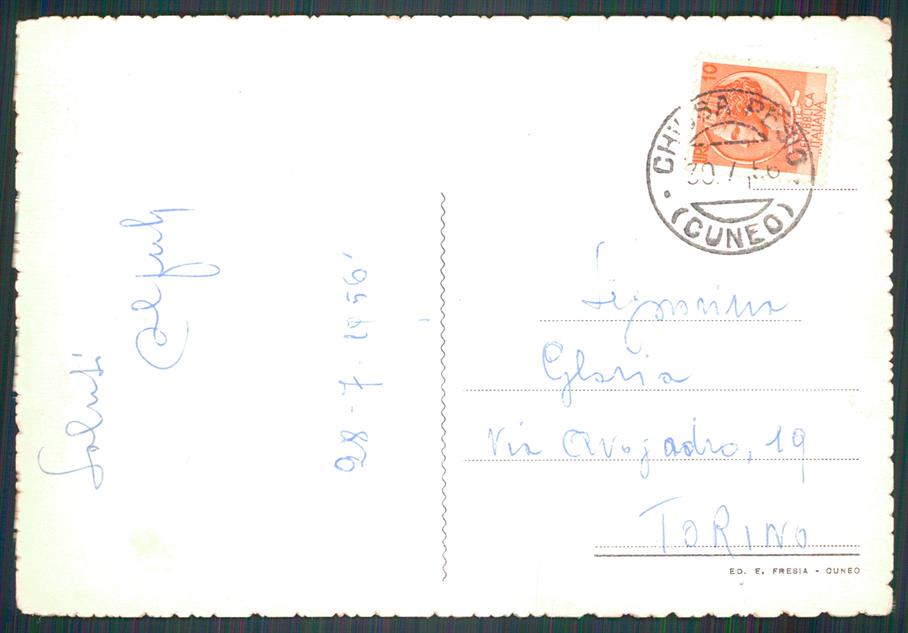 Saluti
28-7-1956'
10
LIRE
REPUBBLICA
ITALIANA
CHIUSA PESIO
30.7.56
(CUNEO)
Signorina
Gloria
Via Avogadro, 19
TORINO
ED. E. FRESIA - CUNEO